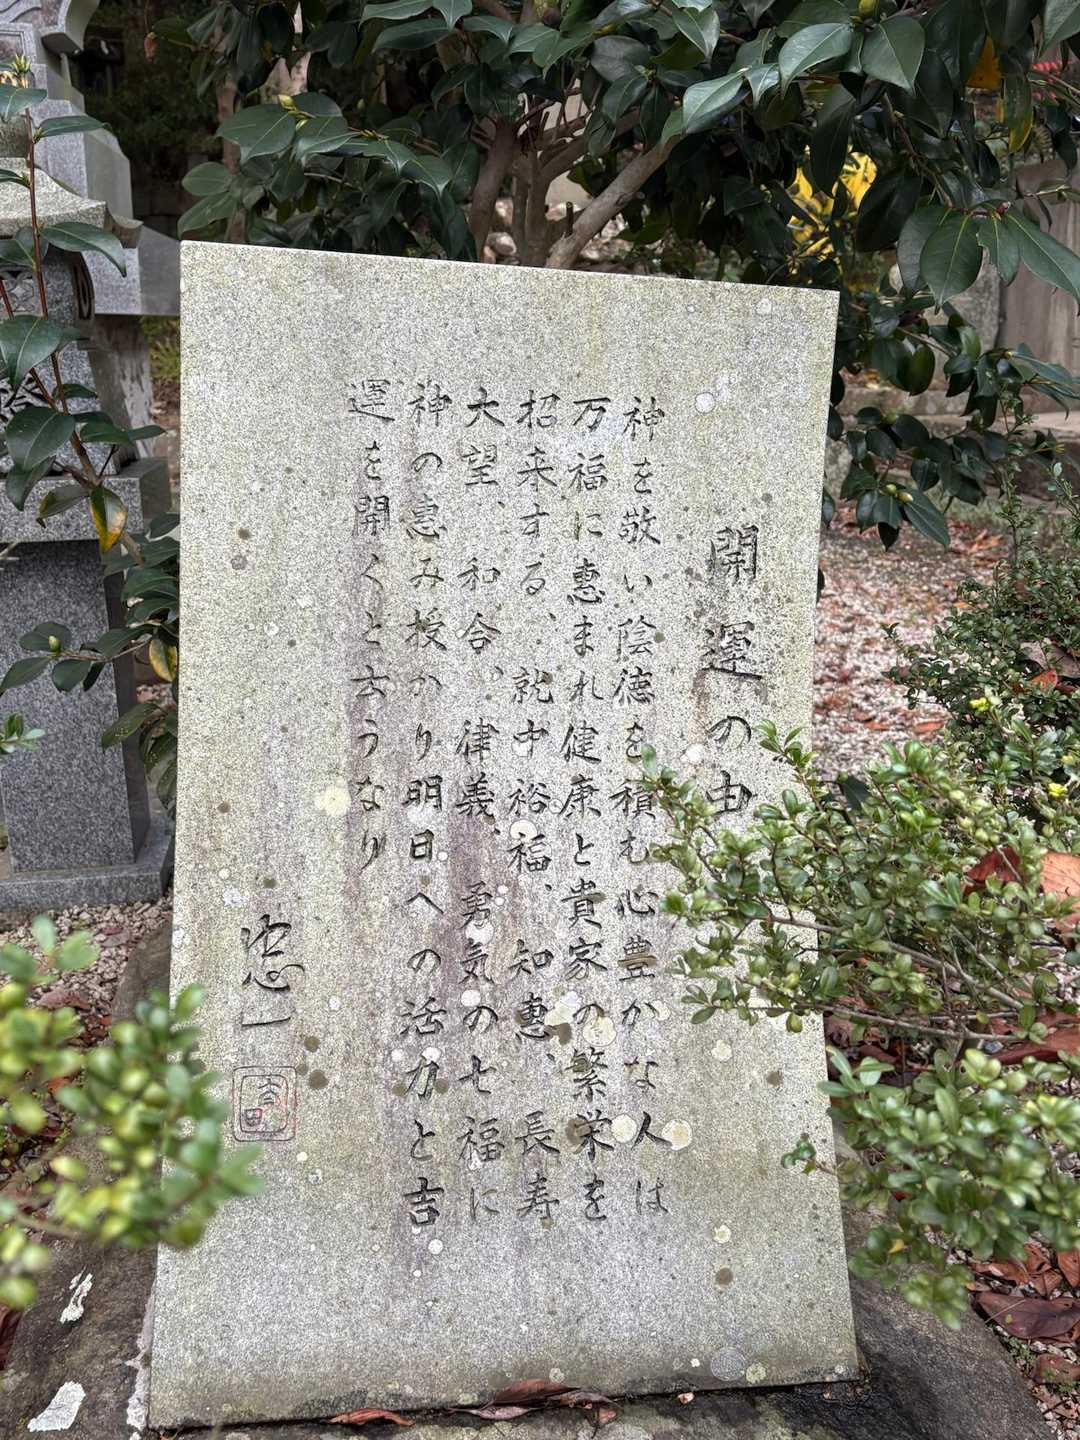 開運の由
神を敬い陰徳を積む心豊かな人は
万福に恵まれ健康と貴家の繁栄を
招来する、就中裕福、知恵、長寿
大望、和合、律義、勇気の七福に
神の恵み授かり明日への活力と吉
運を開くと云うなり
忠一